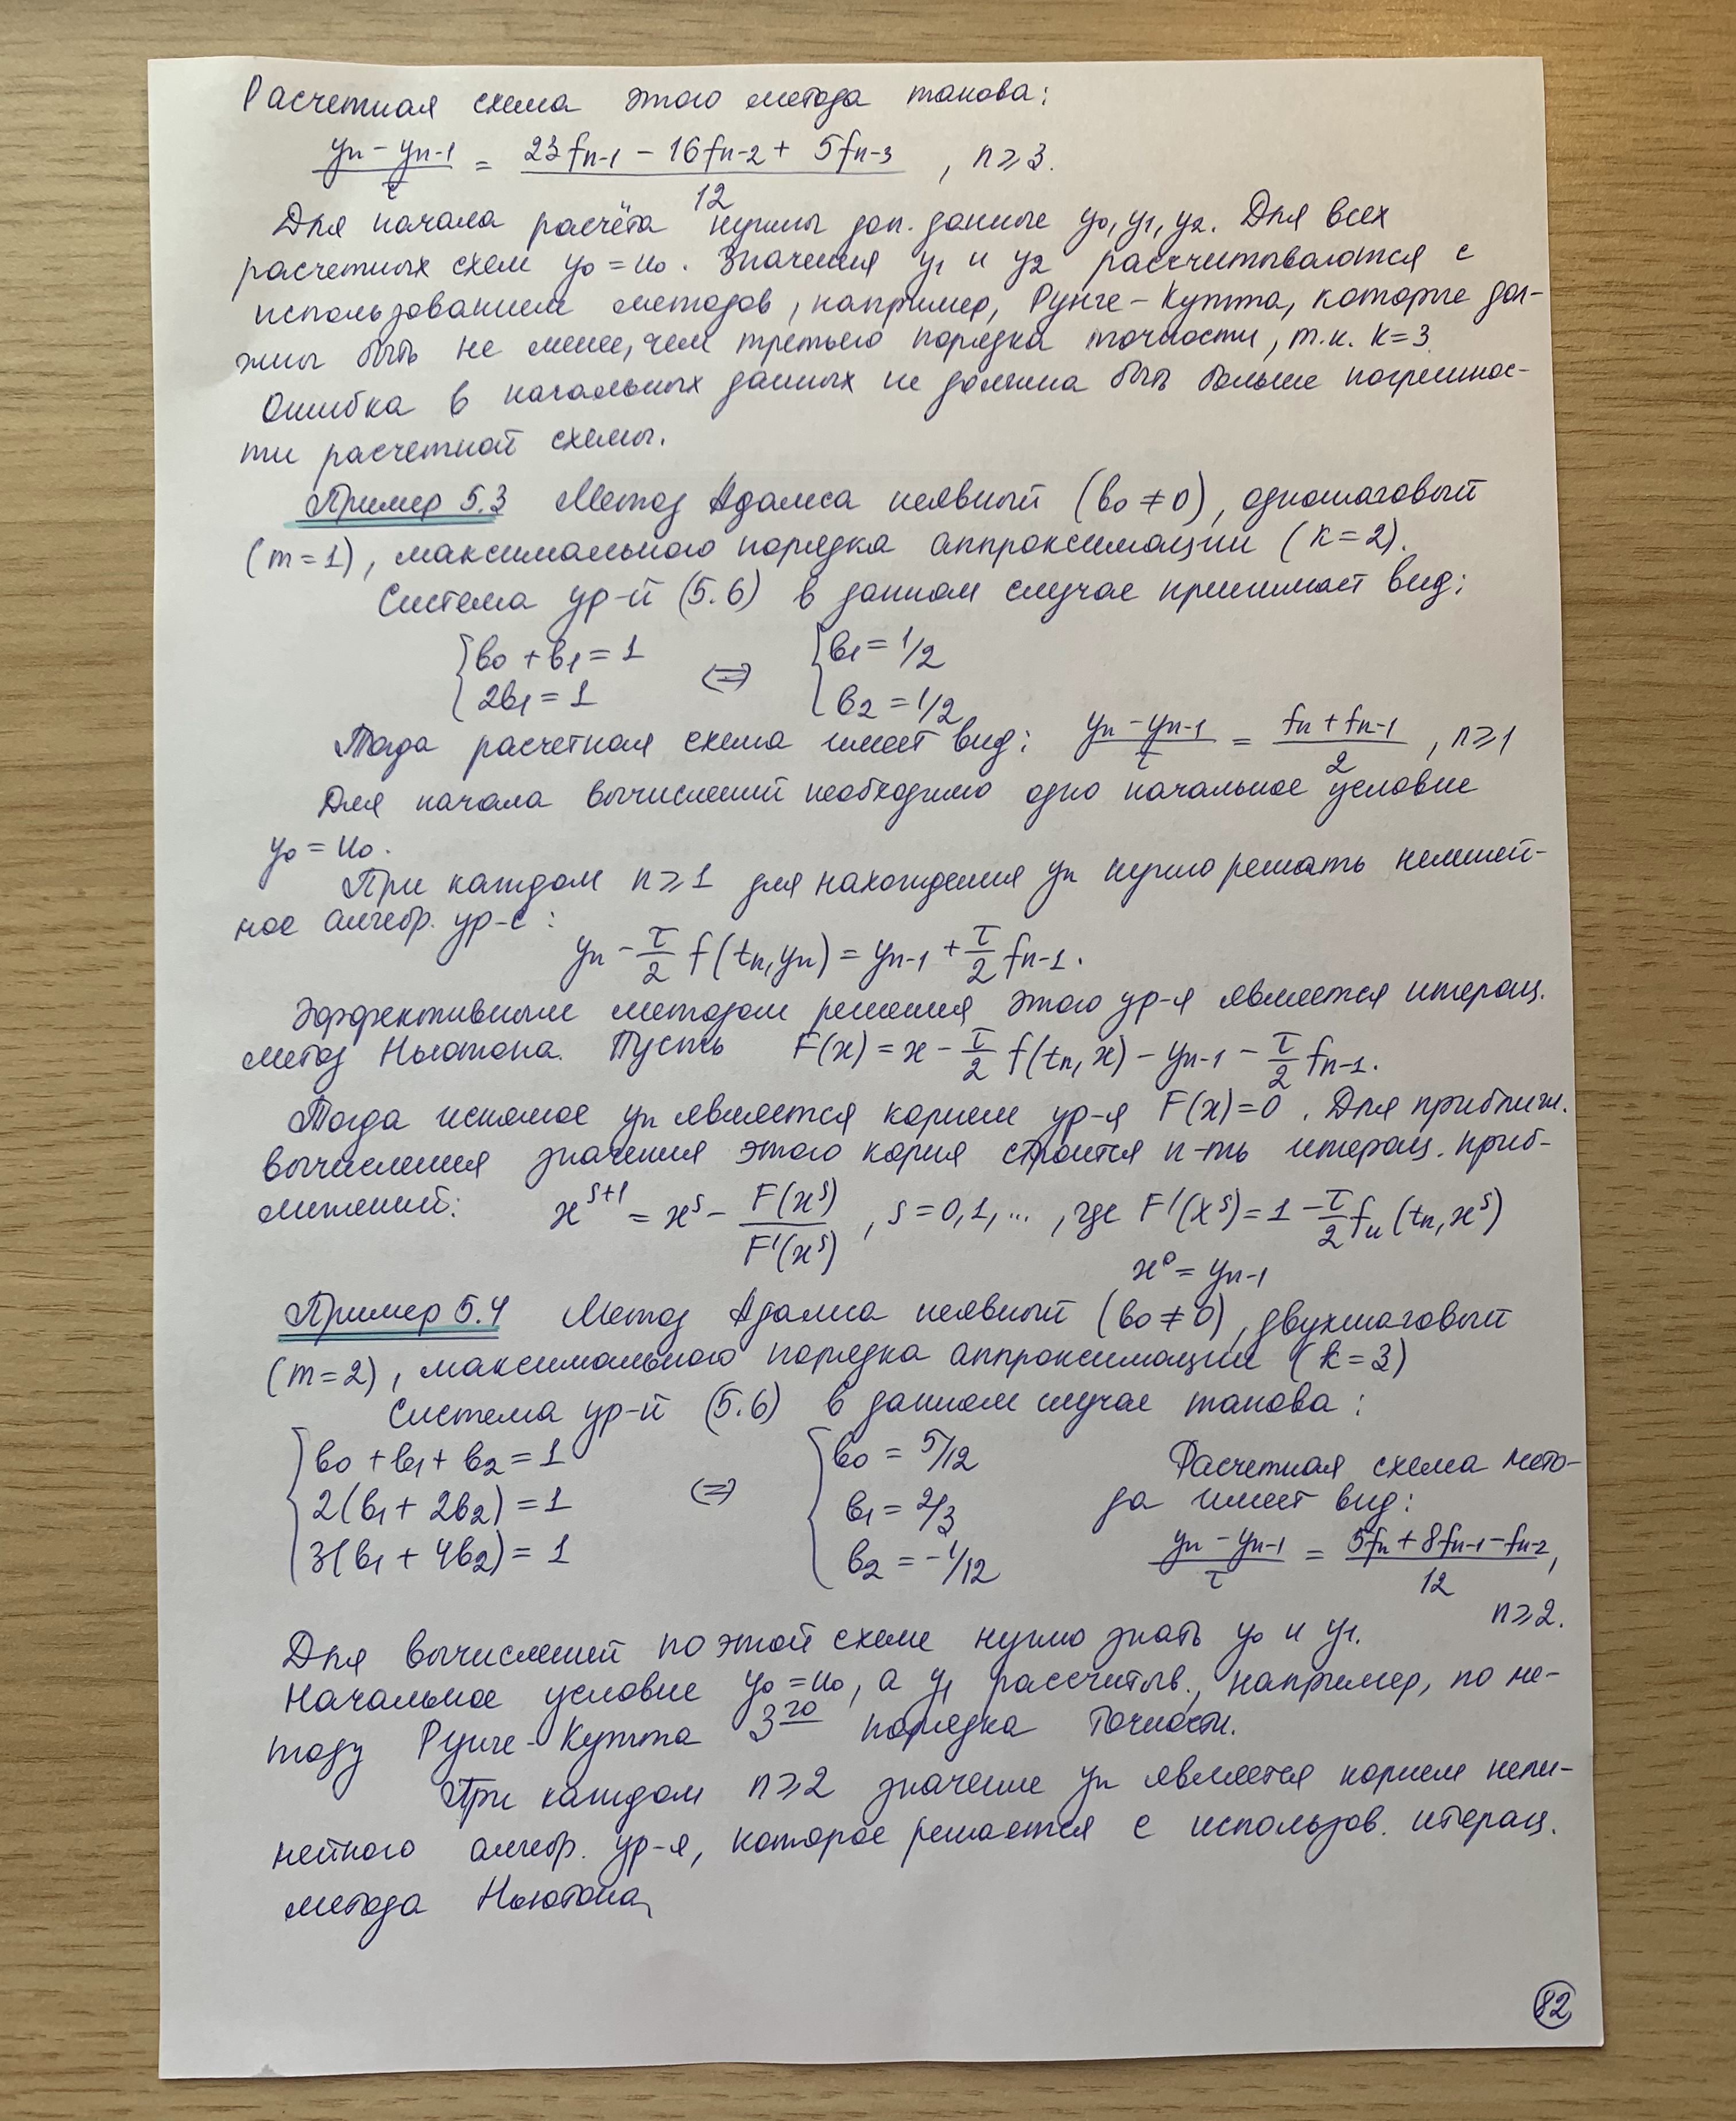 Расчетная схема этого метода такова:
(yn − yn-1)/τ = (23fn-1 − 16fn-2 + 5fn-3)/12 , n ⩾ 3.
Для начала расчёта нужны доп. данные y0, y1, y2. Для всех
расчетных схем y0 = u0. Значения y1 и y2 рассчитываются с
использованием методов, например, Рунге-Кутта, которые дол-
жны быть не менее, чем третьего порядка точности, т.к. k=3
Ошибка в начальных данных не должна быть больше погрешнос-
ти расчетной схемы.
Пример 5.3 Метод Адамса неявный (b0 ≠ 0), одношаговый
(m=1), максимального порядка аппроксимации (k=2).
Система ур-й (5.6) в данном случае принимает вид:
{ b0 + b1 = 1 ⇔ { b1 = 1/2
{ 2b1 = 1 { b2 = 1/2
Тогда расчетная схема имеет вид: (yn − yn-1)/τ = (fn + fn-1)/2 , n ⩾ 1
Для начала вычислений необходимо одно начальное условие
y0 = u0.
При каждом n ⩾ 1 для нахождения yn нужно решать нелиней-
ное алгебр. ур-е:
yn − τ/2 f(tn, yn) = yn-1 + τ/2 fn-1.
Эффективным методом решения этого ур-я является итерац.
метод Ньютона. Пусть F(x) = x − τ/2 f(tn, x) − yn-1 − τ/2 fn-1.
Тогда искомое yn является корнем ур-я F(x)=0. Для приближ.
вычисления значения этого корня строится п-ть итерац. приб-
лижений: x^{s+1} = x^s − F(x^s)/F'(x^s) , s = 0,1,... , где F'(x^s) = 1 − τ/2 fu(tn, x^s)
x^0 = yn-1
Пример 5.4 Метод Адамса неявный (b0 ≠ 0), двухшаговый
(m=2), максимального порядка аппроксимации (k=3)
Система ур-й (5.6) в данном случае такова:
{ b0 + b1 + b2 = 1 { b0 = 5/12 Расчетная схема мето-
{ 2(b1 + 2b2) = 1 ⇔ { b1 = 2/3 да имеет вид:
{ 3(b1 + 4b2) = 1 { b2 = −1/12 (yn − yn-1)/τ = (5fn + 8fn-1 − fn-2)/12,
n ⩾ 2.
Для вычислений по этой схеме нужно знать y0 и y1.
Начальное условие y0 = u0, а y1 рассчитыв., например, по ме-
тоду Рунге-Кутта 3го порядка точности.
При каждом n ⩾ 2 значение yn является корнем нели-
нейного алгебр. ур-я, которое решается с использов. итерац.
метода Ньютона,
82